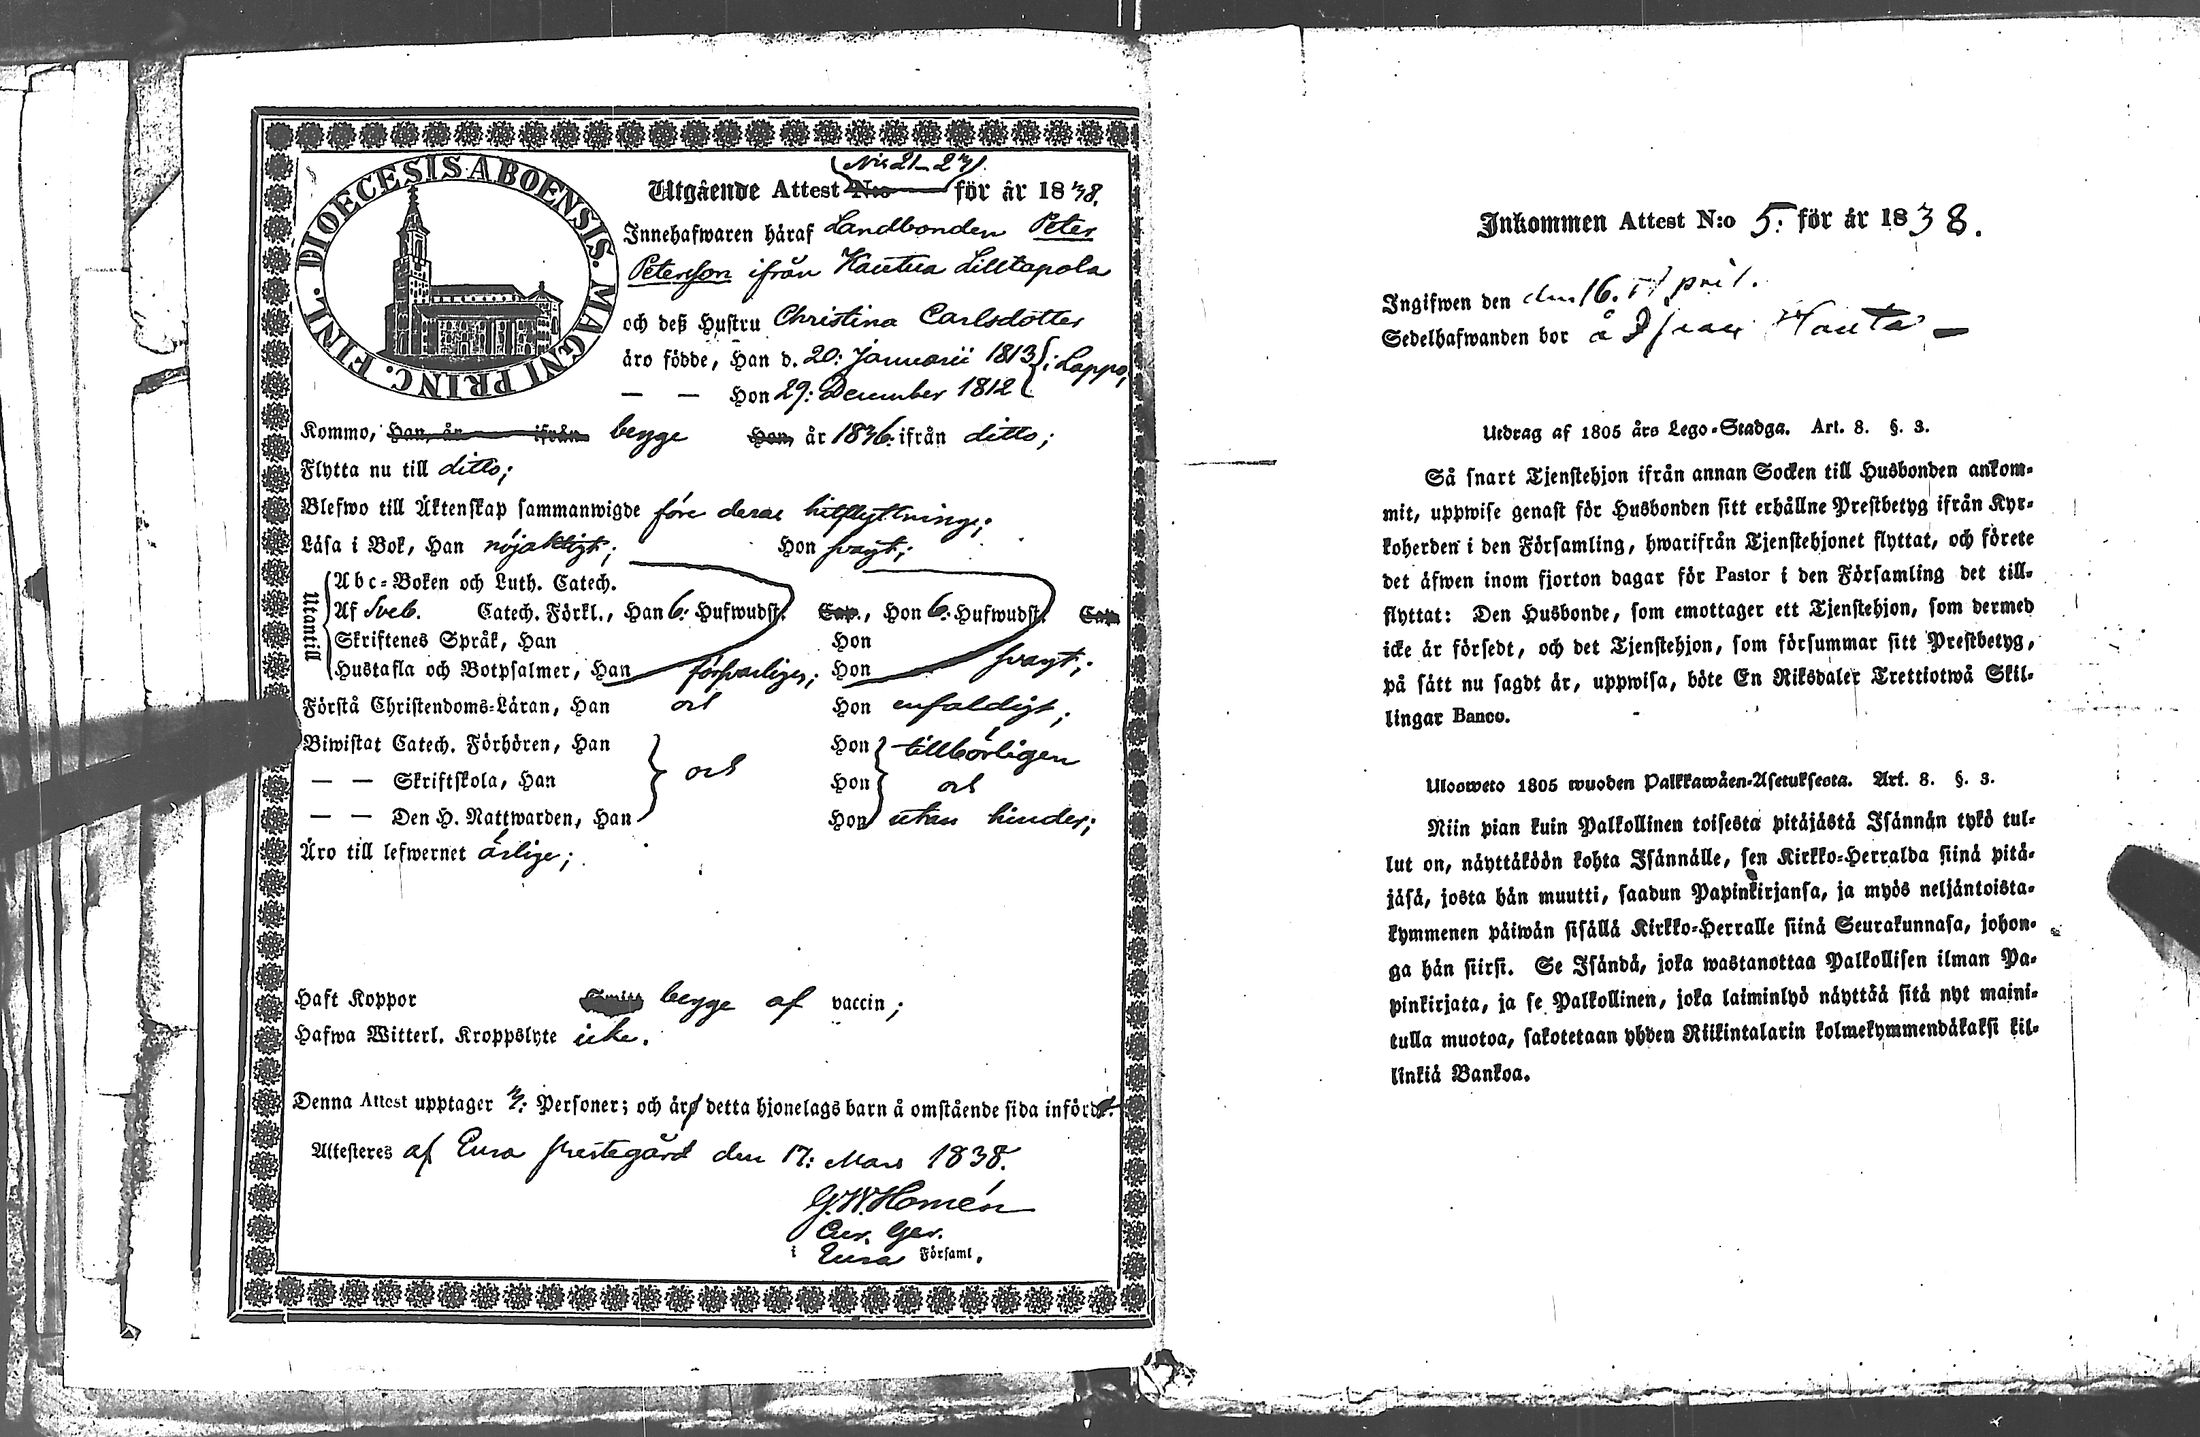 DIOECESIS ABOENSIS. MAGNI PRINC. FINL.
(N:is 21-27).
Utgående Attest N:o för år 1838.
Innehafwaren häraf Landbonden Peter
Petersson ifrån Kautua Lilltapola
och deß Hustru Christina Carlsdotter
äro födde, Han d. 20: Januarii 1813 i Lappo,
— — Hon 29: December 1812
Kommo, Han, år ifrån begge Hon, år 1836. ifrån ditto;
Flytta nu till ditto;
Blefwo till Äktenskap sammanwigde före deras hitflyttning;
Läsa i Bok, Han nöjaktigt; Hon svagt;
Utantill
Abc-Boken och Luth. Catech.
Af Sveb. Catech. Förkl., Han 6: Hufwudst. Cap., Hon 6: Hufwudst. Cap.
Skriftenes Språk, Han Hon
Hustafla och Botpsalmer, Han försvarliger; Hon svagt;
Förstå Christendoms-Läran, Han och Hon enfaldigt;
Biwistat Catech. Förhören, Han Hon tillbörligen
— — Skriftskola, Han och Hon och
— — Den H. Nattwarden, Han Hon utan hinder;
Äro till lefwernet ärlige;
Haft Koppor begge af vaccin;
Hafwa Witterl. Kroppslyte icke.
Denna Attest upptager Personer; och äro detta hjonelags barn å omstående sida införde.
Attesteres af Eura Prestegård den 17: Mars 1838.
G.W. Homén
Cur. Ger.
i Eura Församl.
Inkommen Attest N:o 5: för år 1838.
Ingifwen den den 16. April.
Sedelhafwanden bor å
Utdrag af 1805 års Lego-Stadga. Art. 8. §. 3.
Så snart Tjenstehjon ifrån annan Socken till Husbonden ankom-
mit, uppwise genast för Husbonden sitt erhållne Prestbetyg ifrån Kyr-
koherden i den Församling, hwarifrån Tjenstehjonet flyttat, och förete
det äfwen inom fjorton dagar för Pastor i den Församling det till-
flyttat: Den Husbonde, som emottager ett Tjenstehjon, som dermed
icke är försedt, och det Tjenstehjon, som försummar sitt Prestbetyg,
på sätt nu sagdt är, uppwisa, böte En Riksdaler Trettiotwå Skil-
lingar Banco.
Ulosweto 1805 wuoden Palkkawäen-Asetuksesta. Art. 8. §. 3.
Niin pian kuin Palkollinen toisesta pitäjästä Isännän tykö tul-
lut on, näyttäköön kohta Isännälle, sen Kirkko-Herralda siinä pitä-
jäsä, josta hän muutti, saadun Papinkirjansa, ja myös neljäntoista-
kymmenen päiwän sisällä Kirkko-Herralle siinä Seurakunnasa, johon-
ga hän siirsi. Se Isändä, joka wastanottaa Palkollisen ilman Pa-
pinkirjata, ja se Palkollinen, joka laiminlyö näyttää sitä nyt maini-
tulla muotoa, sakotetaan yhden Riikintalarin kolmekymmendäkaksi kil-
linkiä Bankoa.